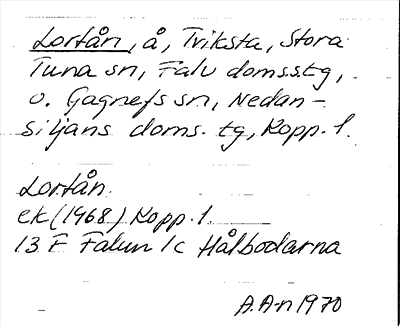 Lortån, å, Tviksta, Stora
Tuna sn, Falu doms.tg,
o. Gagnefs sn, Nedan-
siljans doms. tg, Kopp. l.
Lortån.
ek (1968) Kopp. l.
13 F Falun 1c Hålbodarna
A.A-n 1970